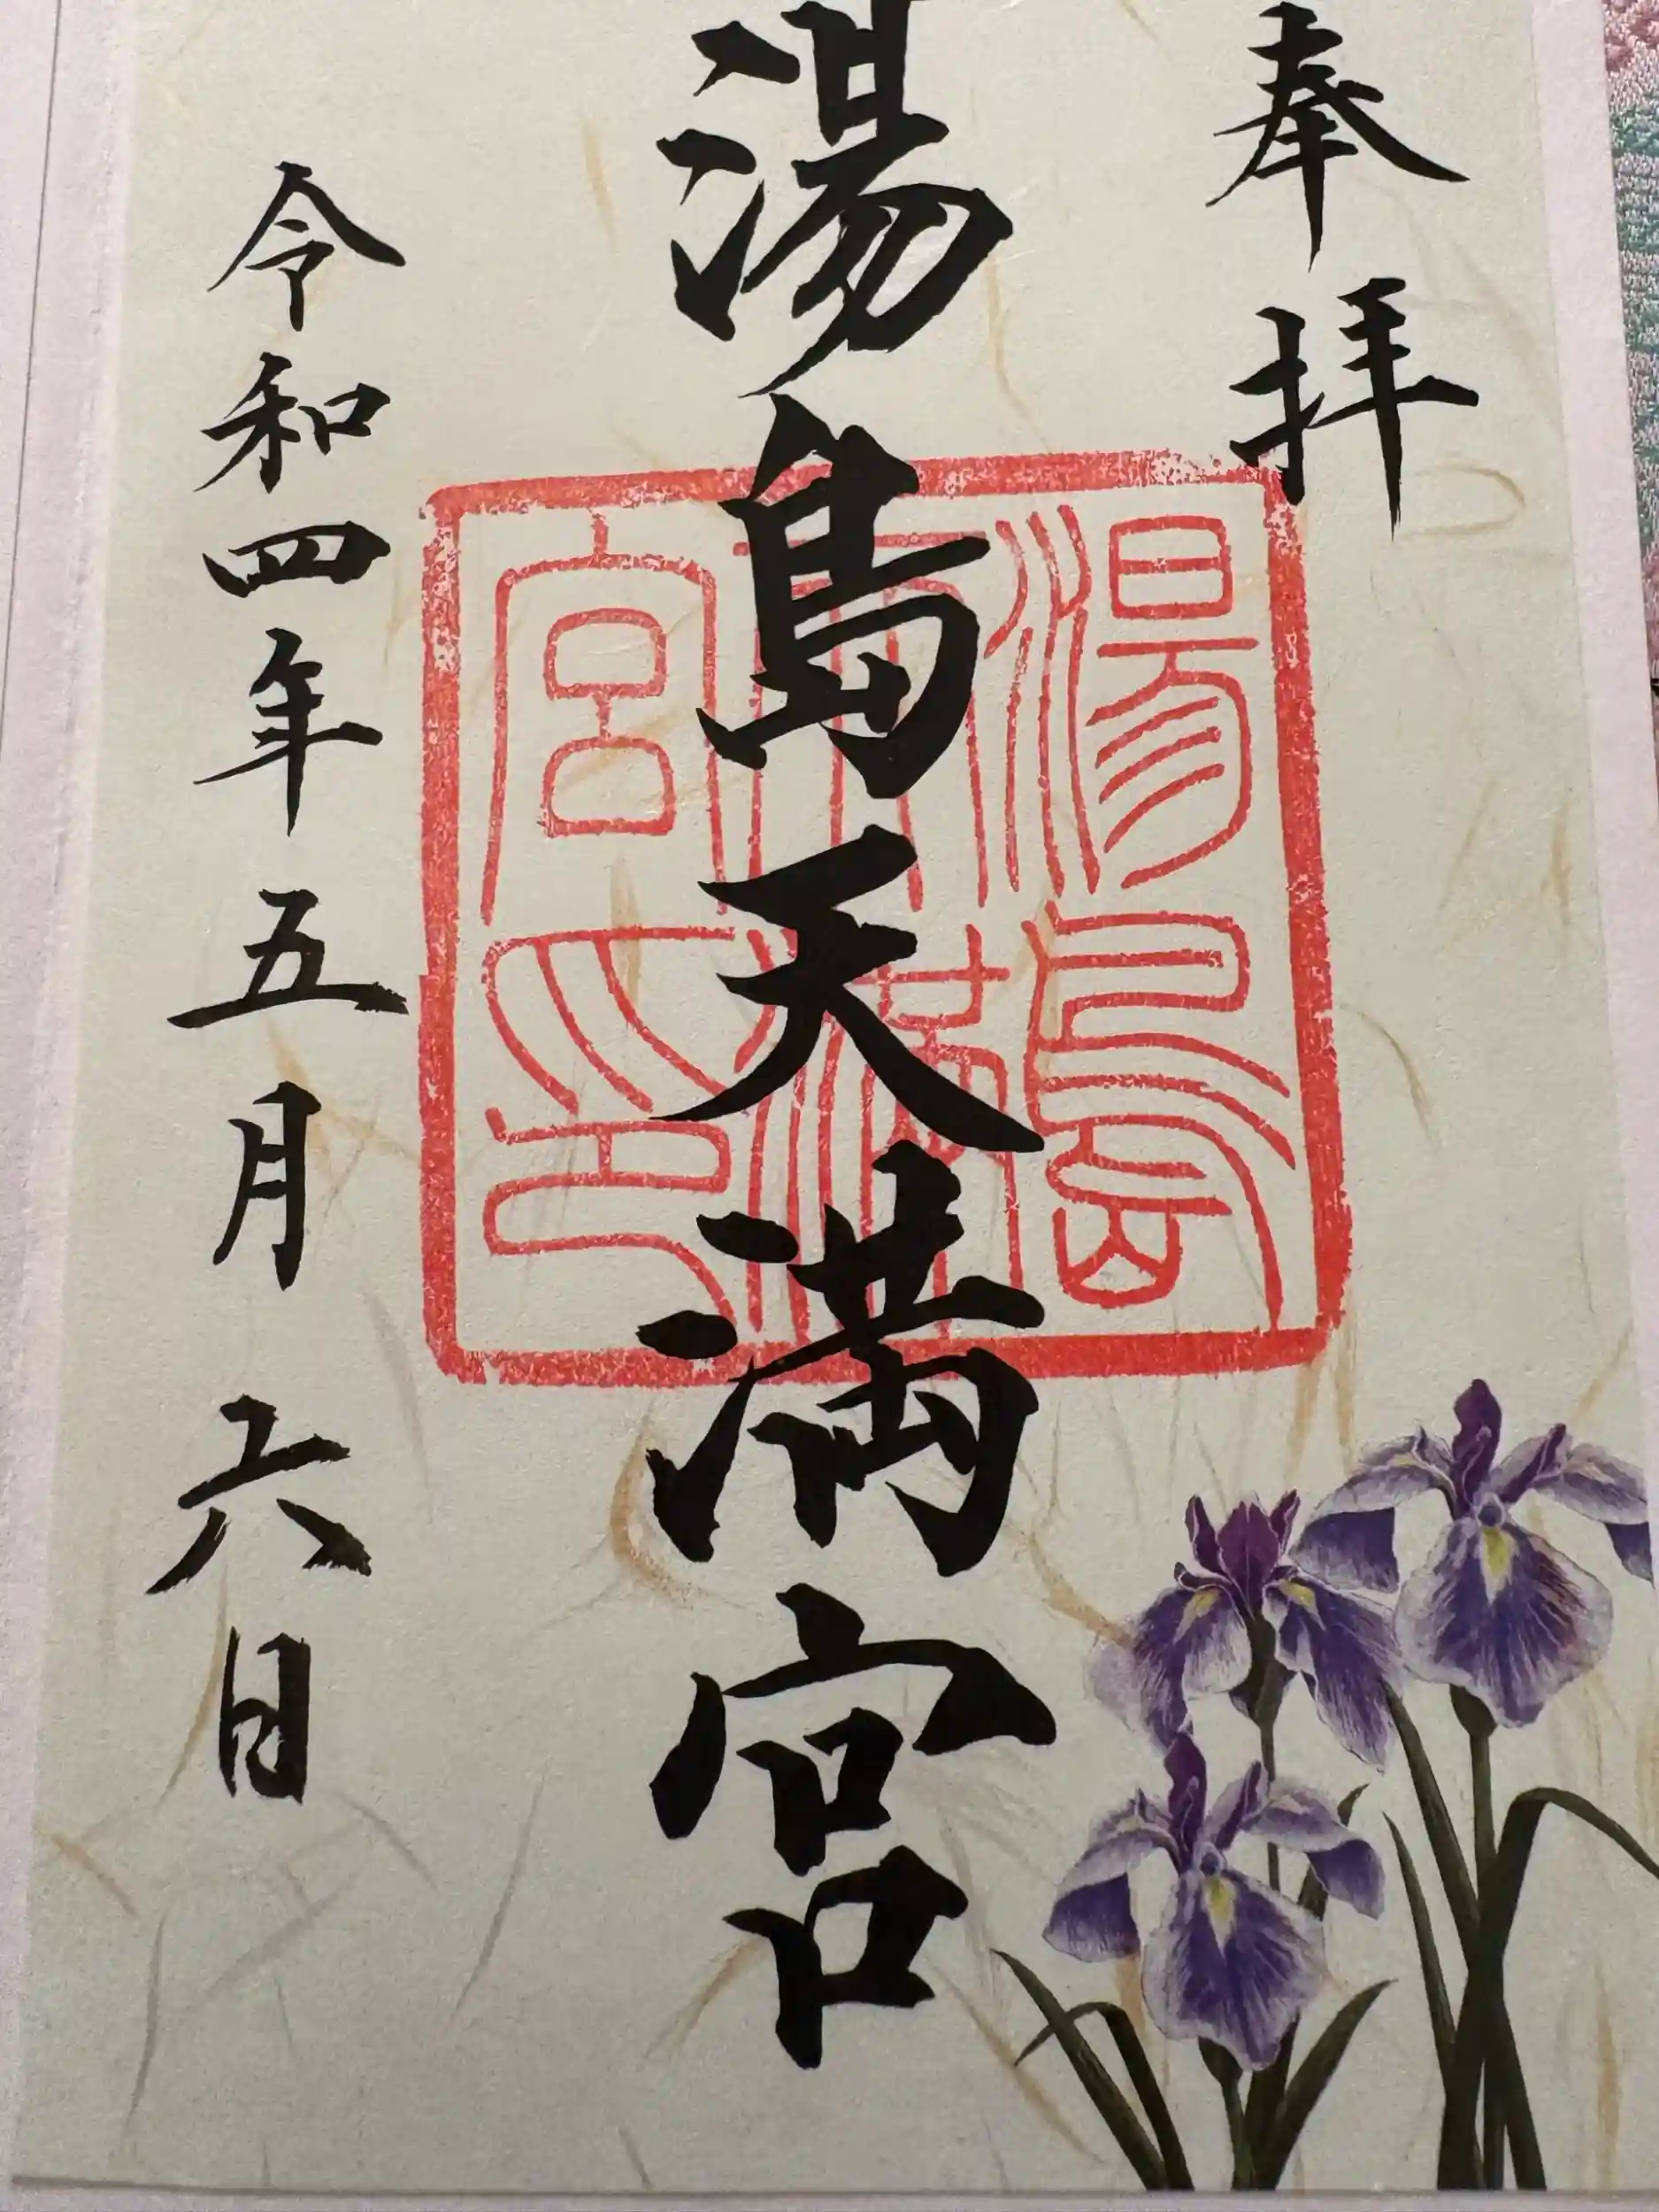 奉拝
湯島天満宮
湯島天満宮印
令和四年五月六日